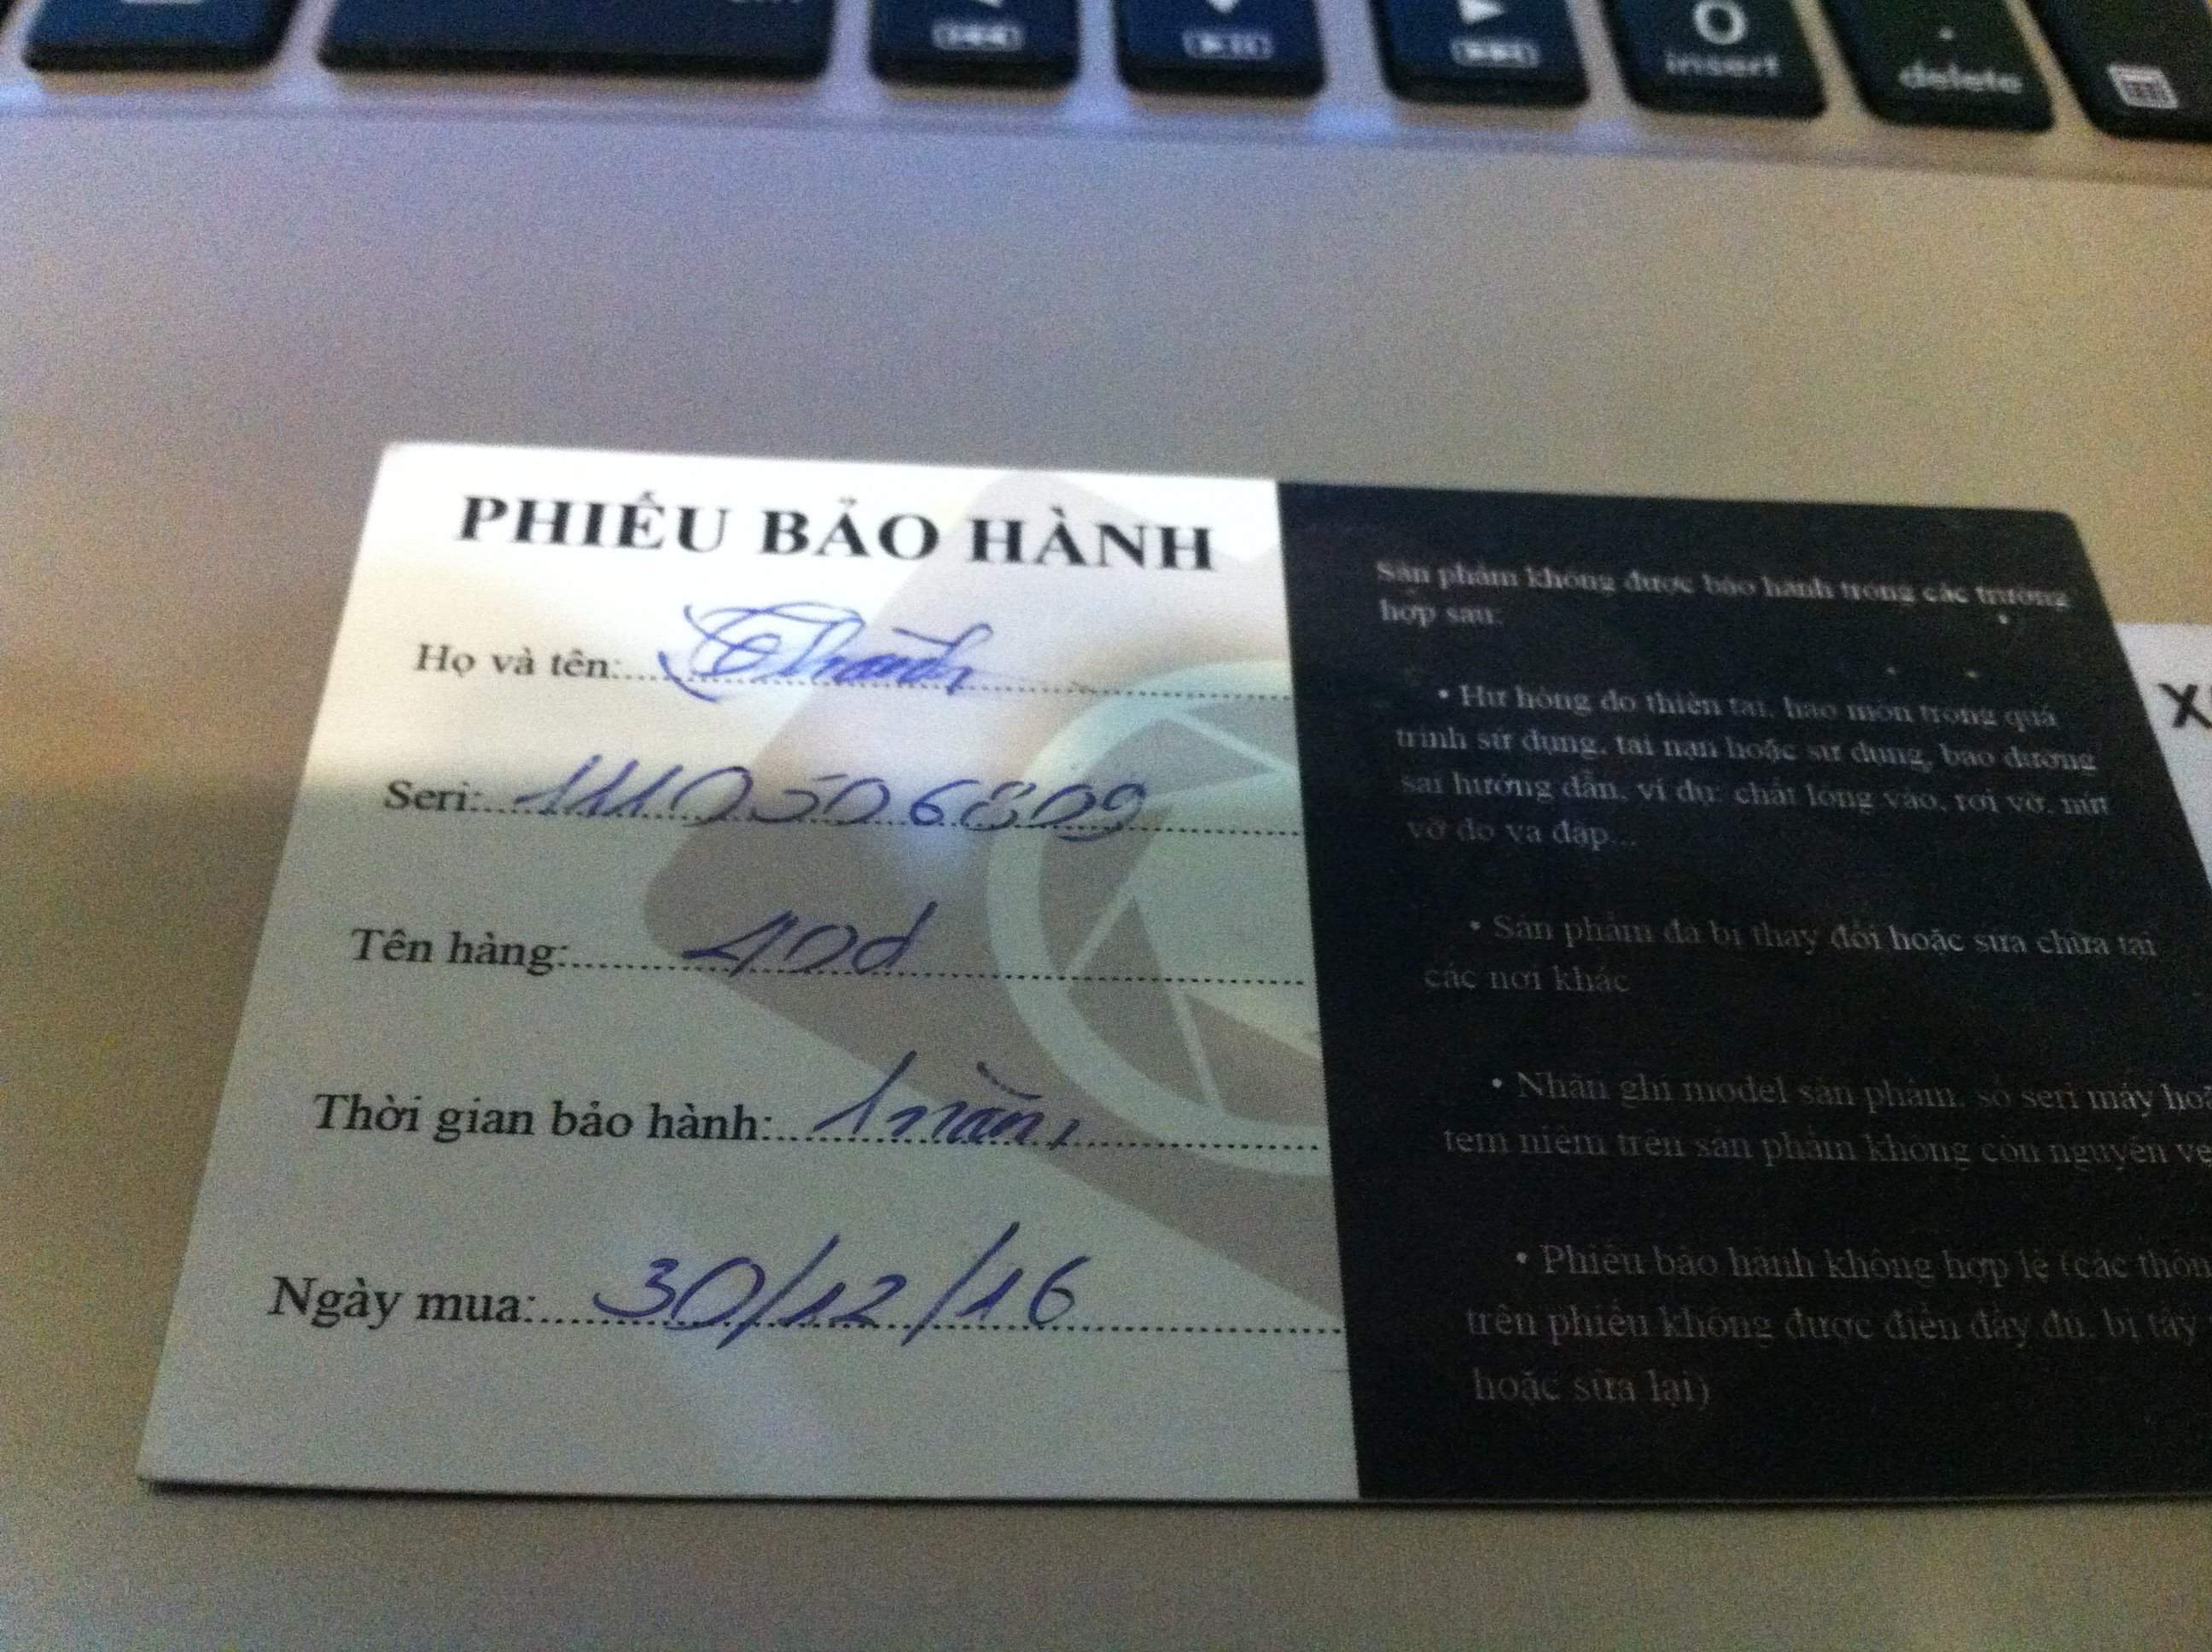 0
insert
.
delete
PHIẾU BẢO HÀNH
Họ và tên: Thành
Seri: 1110506809
Tên hàng: 40d
Thời gian bảo hành: 1 năm
Ngày mua: 30/12/16
Sản phẩm không được bảo hành trong các trường
hợp sau:
• Hư hỏng do thiên tai, hao mòn trong quá
trình sử dụng, tai nạn hoặc sử dụng, bảo dưỡng
sai hướng dẫn, ví dụ: chất lỏng vào, rơi vỡ, nứt
vỡ do va đập...
• Sản phẩm đã bị thay đổi hoặc sữa chữa tại
các nơi khác
• Nhãn ghi model sản phẩm, số seri máy
tem niêm trên sản phẩm không còn nguyên
• Phiếu bảo hành không hợp lệ (các
trên phiếu không được điền đầy đủ, bị tẩy
hoặc sữa lại)
X